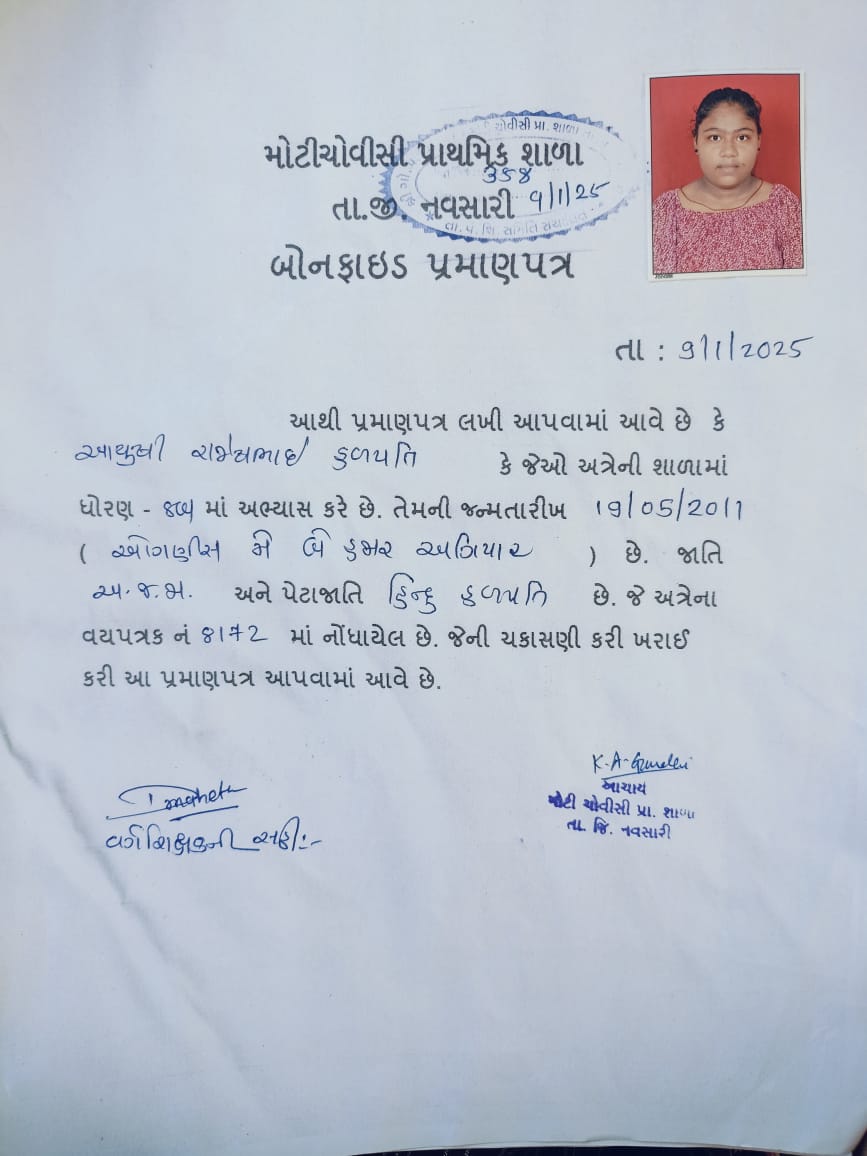 મોટીચોવીસી પ્રાથમિક શાળા
ચોવીસી પ્રા. શાળા
૩૬૪
તા.જી. નવસારી 9/1/25
બોનફાઇડ પ્રમાણપત્ર
તા : 9/1/2025
આથી પ્રમાણપત્ર લખી આપવામાં આવે છે કે
રાજેશભાઇ હળપતિ કે જેઓ અત્રેની શાળામાં
ધોરણ - માં અભ્યાસ કરે છે. તેમની જન્મતારીખ 19/05/2011
( ઓગણીસ મે બે હજાર અગિયાર ) છે. જાતિ
અ.જ.જા. અને પેટાજાતિ હિન્દુ હળપતિ છે. જે અત્રેના
વયપત્રક નં ૪172 માં નોંધાયેલ છે. જેની ચકાસણી કરી ખરાઈ
કરી આ પ્રમાણપત્ર આપવામાં આવે છે.
વર્ગ શિક્ષકની સહી:-
K. A.
આચાર્ય
મોટી ચોવીસી પ્રા. શાળા
તા. જિ. નવસારી